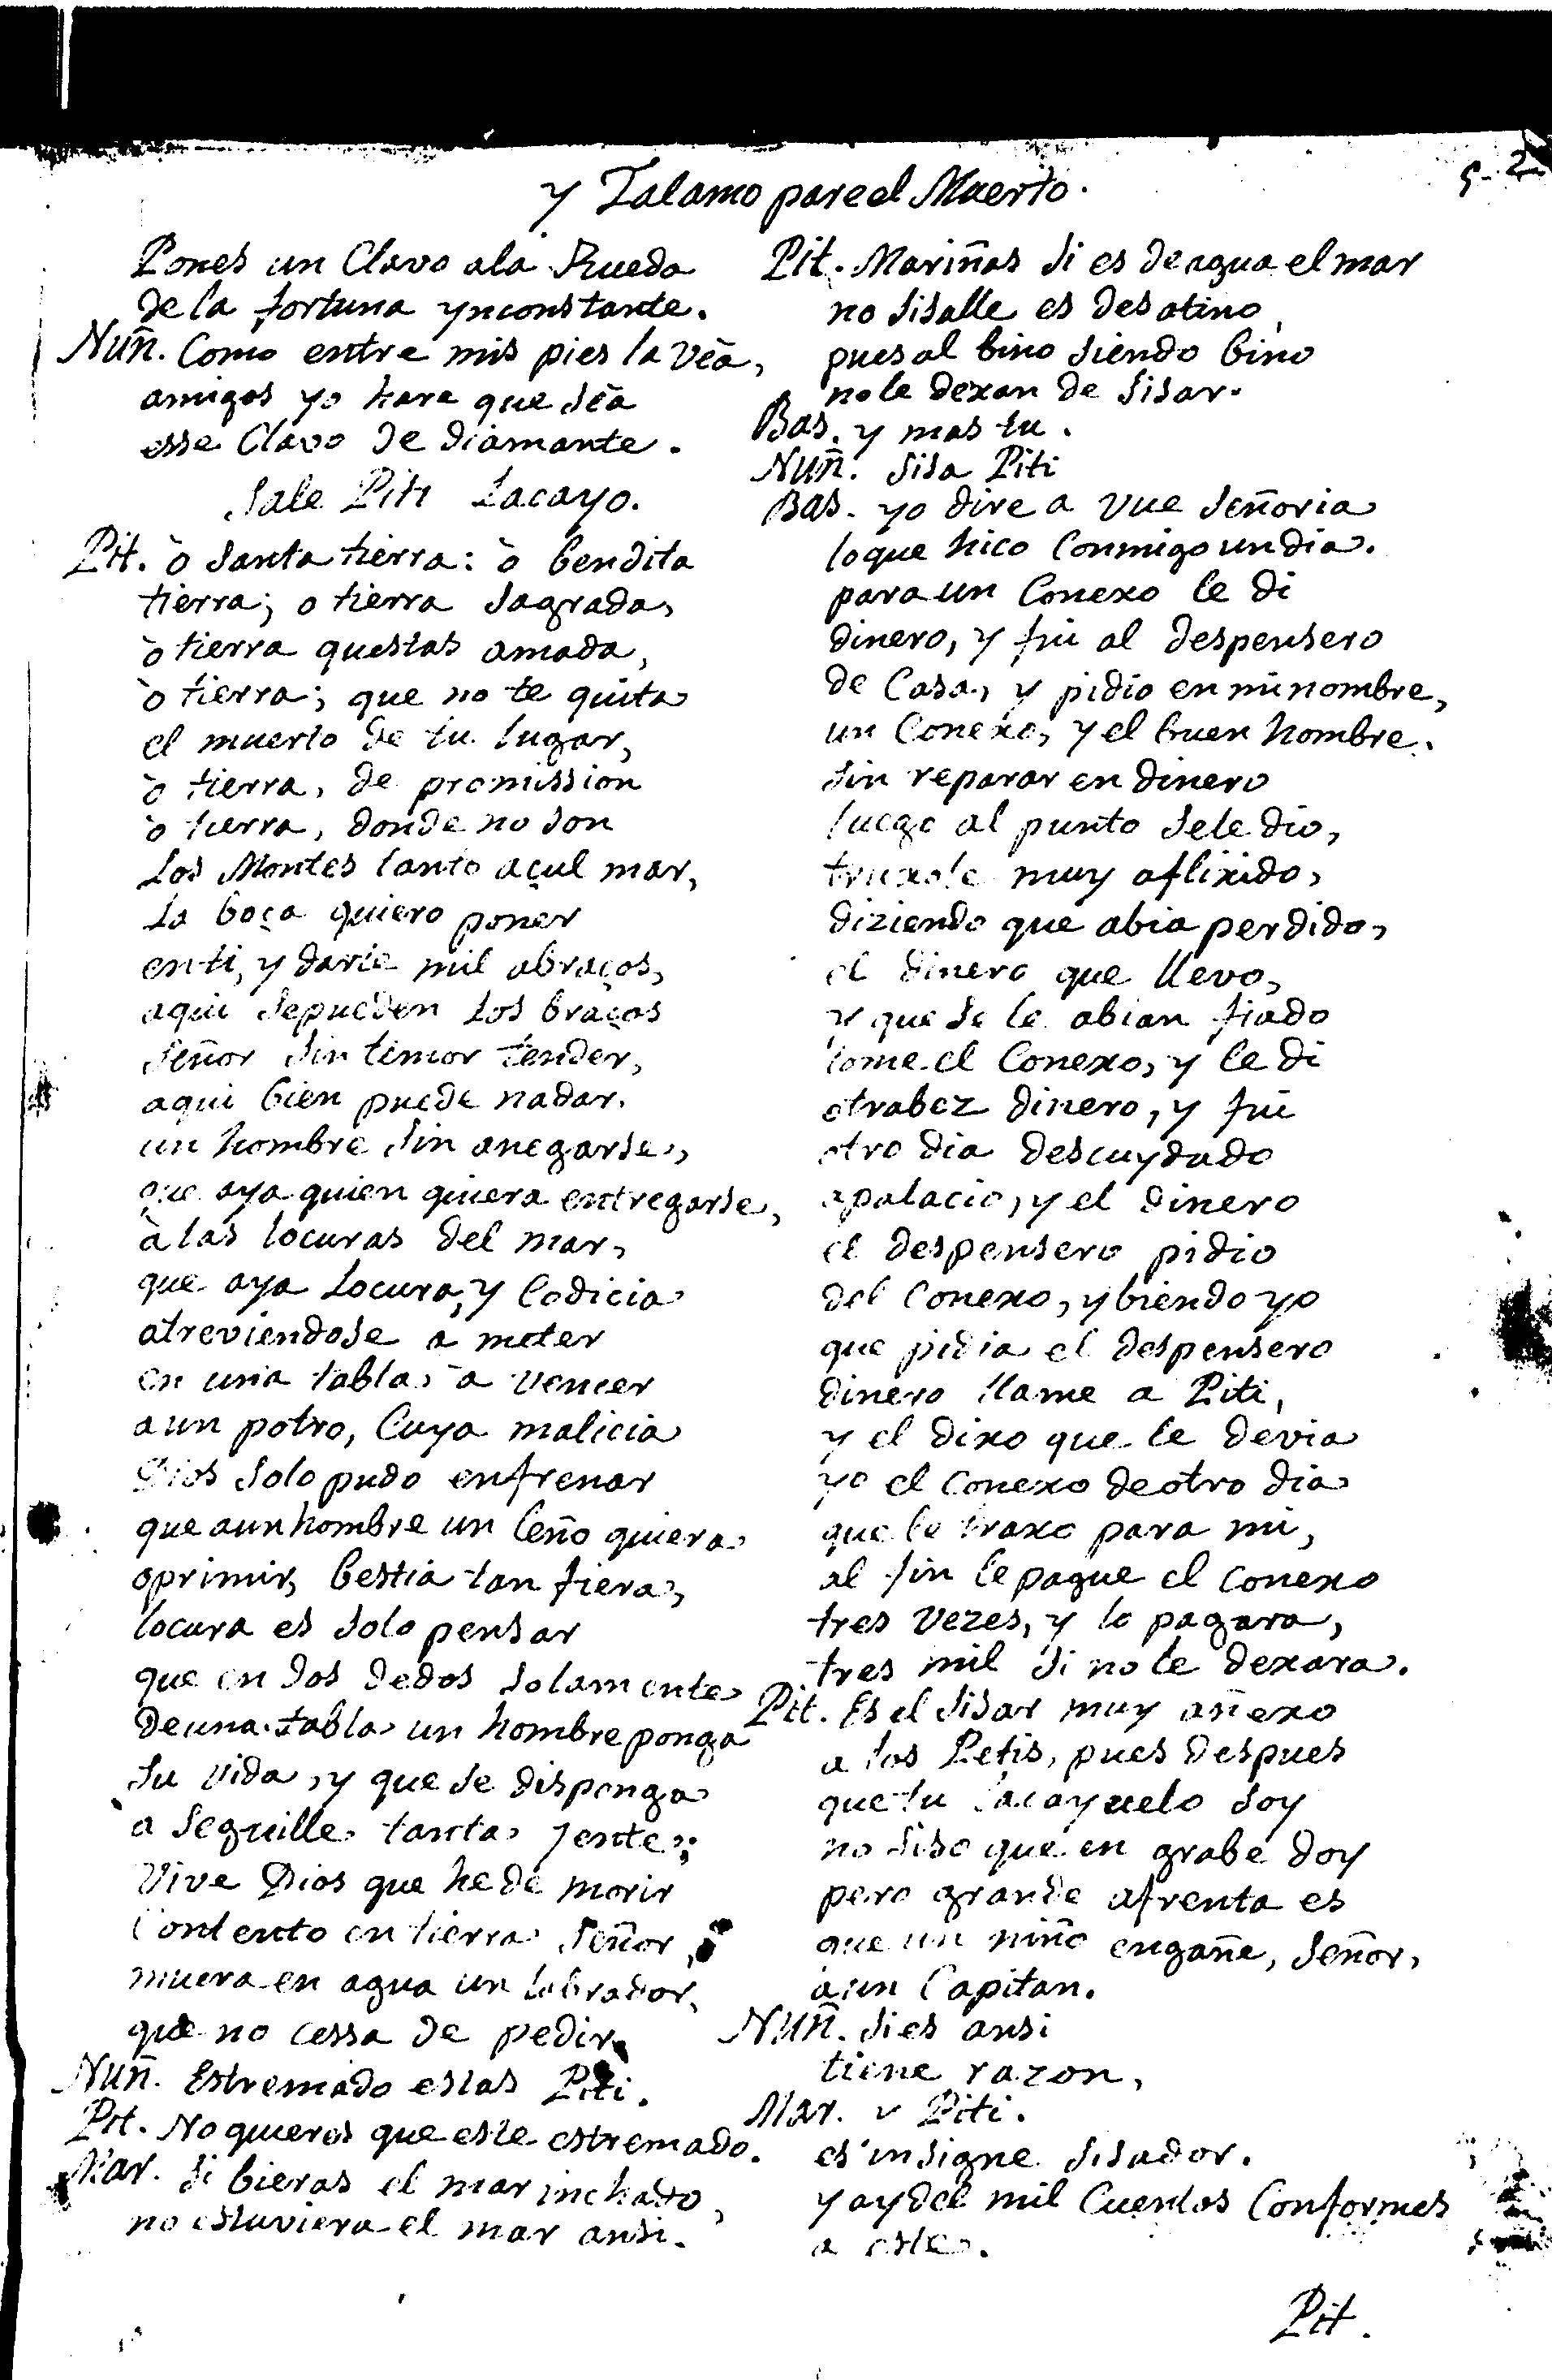 y Talamo para el Muerto.
Pones un Clavo ala Rueda
de la fortuna ynconstante.
Nuñ. Como entre mis pies la vea,
amigos yo hare que sea
esse Clavo de diamante.
Sale Piti Lacayo.
Pit. ò santa tierra: ò bendita
tierra; o tierra sagrada,
ò tierra questas amada,
ò tierra; que no te quita
el muerto de tu lugar,
ò tierra, de promission
ò tierra, donde no son
Los Montes tanto açul mar,
La boca quiero poner
enti, y darte mil abraços,
aqui sepueden Los braços
señor sin temor tender,
aqui bien puede nadar.
un hombre sin anegarse,
que aya quien quiera entregarse,
à las locuras del mar,
que aya Locura, y Codicia
atreviendose à meter
en una tabla, à vencer
a un potro, Cuya malicia
Dios solo pudo enfrenar
que aun hombre un leño quiera
oprimir, bestia tan fiera,
locura es solo pensar
que en dos dedos solamente
deuna tabla un hombre ponga
su vida, y que se disponga
a seguille tanta jente;
Vive Dios que hede morir
Contento en tierra señor,
muera en agua un labrador,
que no cessa de pedir.
Nuñ. Estremado estas Piti.
Pit. No quieres que este estremado.
Mar. si bieras el mar inchado,
no estuviera el mar ansi.
Pit. Mariñas si es de agua el mar
no sisalle es desatino,
pues al bino siendo bino
nole dexan de sisar.
Bas. y mas tu.
Nuñ. sisa Piti
Bas. yo dire a vue señoria
loque hico Conmigo un dia.
para un Conexo le di
dinero, y fue al despensero
de Casa, y pidio en mi nombre,
un Conexo, y el buen hombre.
sin reparar en dinero
luego al punto sele dio,
truxole muy aflixido,
diziendo que abia perdido,
el dinero que llevo,
y que se le abian fiado
tome el Conexo, y le di
otrabez dinero, y fui
otro dia descuydado
apalacio, y el dinero
el despensero pidio
del Conexo, y biendo yo
que pidia el despensero
dinero llame a Piti,
y el dixo que le devia
yo el conexo deotro dia
que le traxo para mi,
al fin le pague el conexo
tres vezes, y lo pagara,
tres mil si no le dexara.
Pit. Es el sisar muy añexo
a los Petis, pues despues
que tu lacayuelo soy
no siso que en grabe doy
pero grande afrenta es
que un niño engañe, señor,
a un Capitan.
Nuñ. sies ansi
tiene razon,
Mar. Piti.
es insigne sisador.
y ay del mil Cuentos Conformes
a este.
Pit.